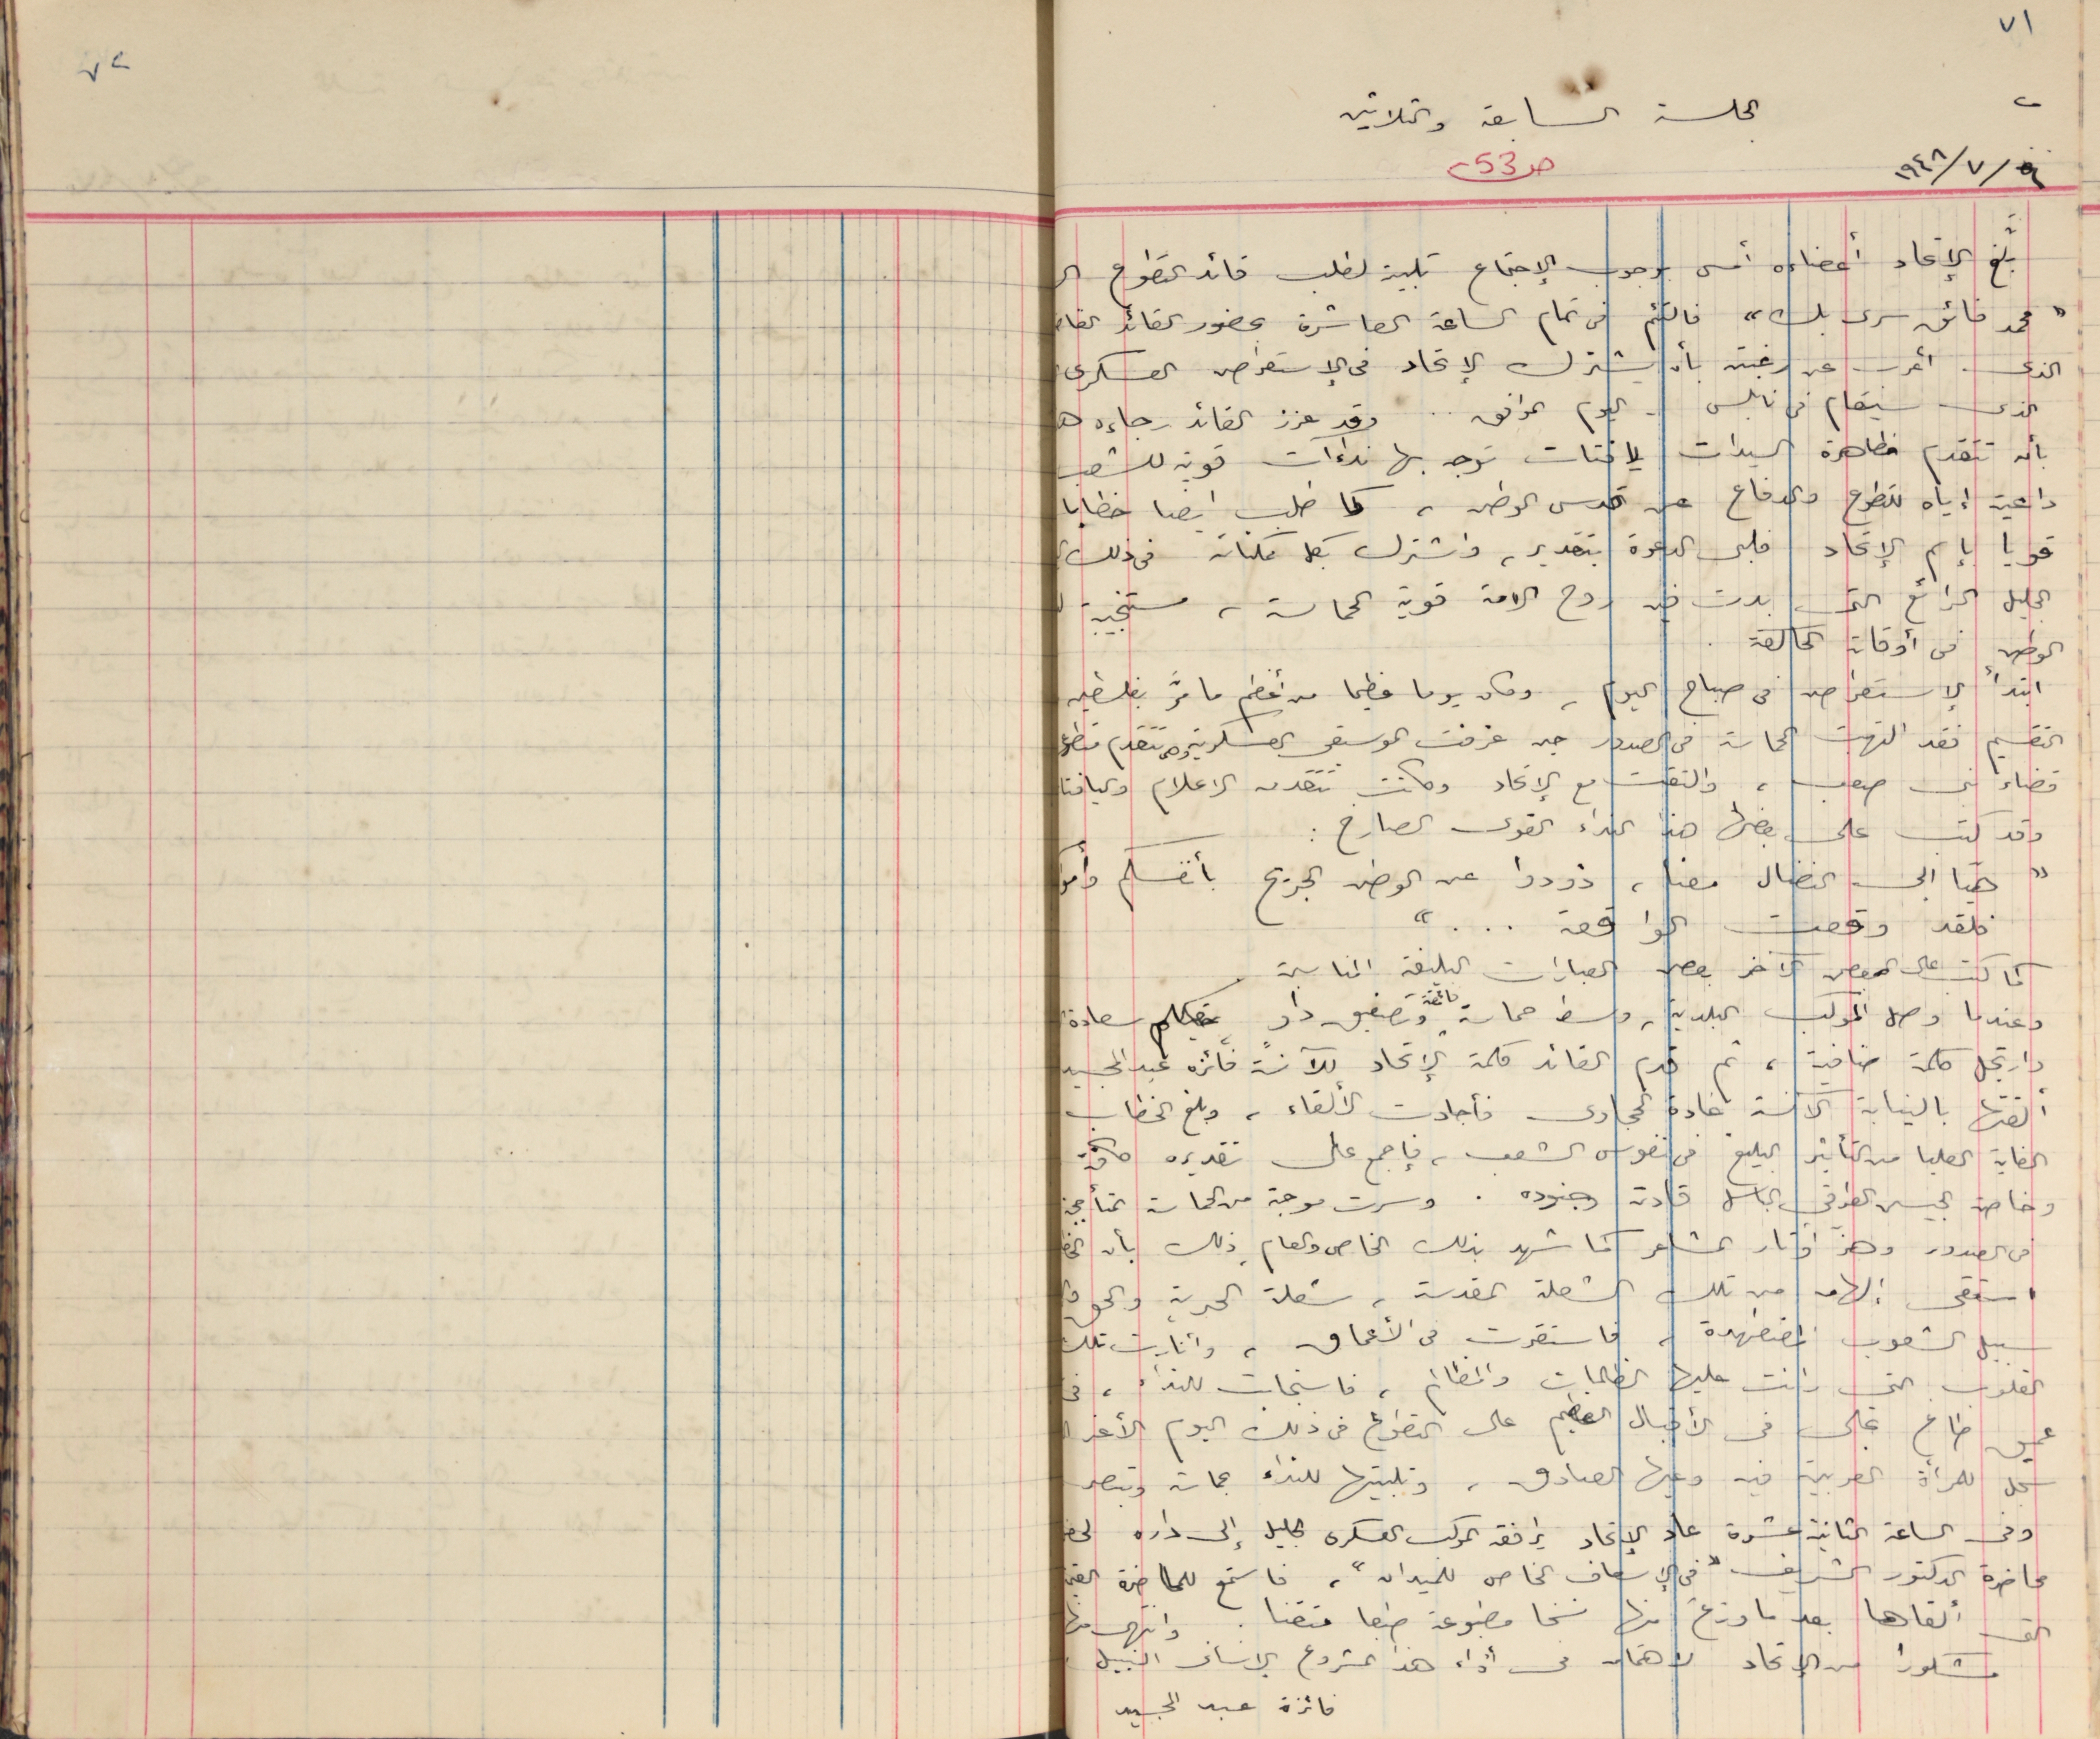 ٧١
الجلسة السابعة والثلاثين
١٩٤٨/٧/
ص 53
بلّغ الإتحاد أعضاءه أمس بوجوب الإجتماع تلبية لطلب قائد التطوع
"محمد فائق سرى بك" فالتئم فى تمام الساعة العاشرة بحضور القائد
الذى أعرب عن رغبته بأن يشترك الإتحاد فى الإستعراض العسكرى
الذى سيقام فى نابلس اليوم الموافق .. وقد عزز القائد رجاءه
بأن تتقدم مظاهرة السيدات لافتات توجه بها نداءات قوية للشعب
داعية إياه للتطوع والدفاع عن قدس الوطن ، كما طلب ايضا خطابا
قويا بإسم الإتحاد فلبى الدعوة بتقدير ، واشترك بكل مكناته فى ذلك
الجليل الرائع التى بدت فيه روح الامة قوية الحماسة ، مستجيبة
الوطن فى أوقاته الحالكة .
ابتدأ الإستعراض فى صباح اليوم ، وكان يوما عظيما من أعظم ما مرّ بفلسطين
التقسيم فقد التهبت الحماسة فى الصدور حين عزفت الموسيقى العسكرية وهى تتقدم
قضاء بنى صعب ، والتقت مع الإتحاد وكانت تتقدمه الاعلام
وقد كتب على بعضها هذا النداء القوى الصارخ :
" هيّا الى النضال معنا ، ذودوا عن الوطن الجريح بأنفسكم
فلقد وقعت الواقعة . . . "
كما كتب على البعض الآخر بعض العبارات البليغة المناسبة
وعندما وصل الموكب البلدية ، وسط حماسة فائقة وتصفيق داو سعادة
وارتجل كلمة ضافية ، ثم قدم القائد كلمة الإتحاد للآنسة فائزه عبد المجيد
ألقتها بالنيابة الآنسة غادة الحجاوى فأجادت الألقاء ، وبلغ الخطاب
الغاية العليا من التأثير البليغ فى نفوس الشعب ، فإجمع على تقديره
وخاصة الجيش العراقى الباسل قادته وجنوده . وسرت موجة من الحماسة
فى الصدور وهزّ أوتار المشاعر كما شهد بذلك الخاص والعام ذلك بأن
استقى إلهامه من تلك الشعلة المقدسة ، شعلة الحرية والحق
سبيل الشعوب المضطهدة ، فاستقرت فى الأعماق ، وأنارت تلك
القلوب التى رانت عليها الظلمات والمظالم ، فاستجابت للنداء ،
عميق طاغ تجلى فى الأقبال العظيم على التطوع فى ذلك اليوم الأغر
سجل للمرأة العربية فيه وعيها الصادق ، وتلبيتها للنداء بحماسة
وفى الساعة الثانية عشرة عاد الإتحاد يرافقه الموكب العسكرى الجليل إلى داره
محاضرة الدكتور الشريف "فى الإسعاف الخاص للميدان" ، فاستمع للمحاضرة
التى ألقاها بعد ما وزع منها نسخا مطبوعة طبعا متقنا . وانتهى منها
مشكورا من الإتحاد لاهتمامه فى أداء هذا المشروع الإنسانى النبيل
فائزة عبد المجيد
٧٢